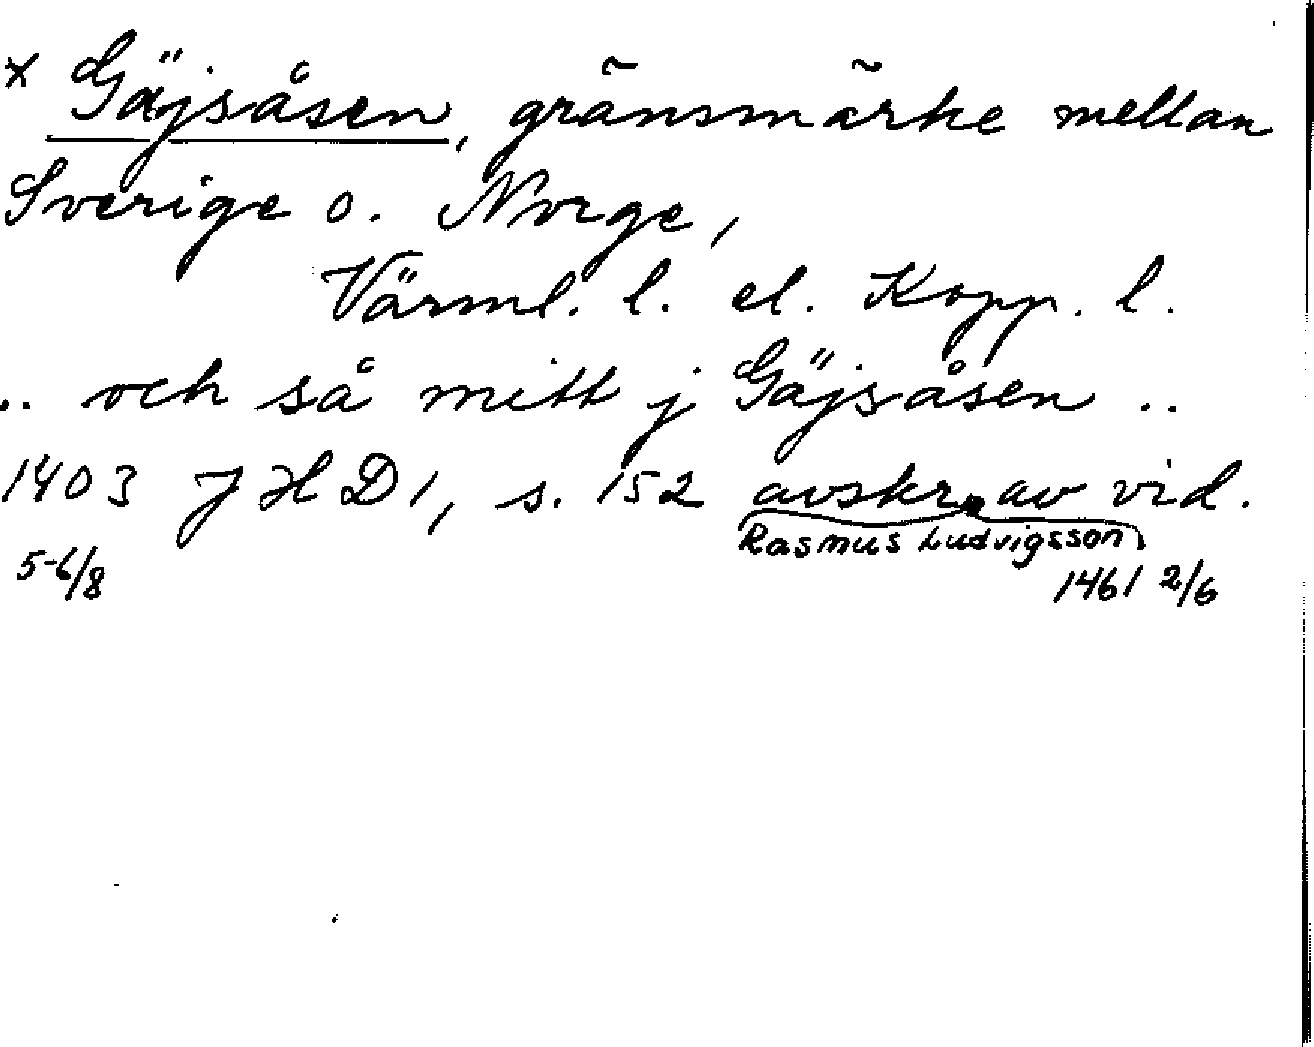 x Gäjsåsen, gränsmärke mellan
Sverige o. Norge,
Värml. l. el. Kopp. l.
.. och så mitt j Gäjsåsen ..
1403 JHD1, s. 152 avskr. av vid.
Rasmus Ludvigsson
5-6/8
1461 2/6